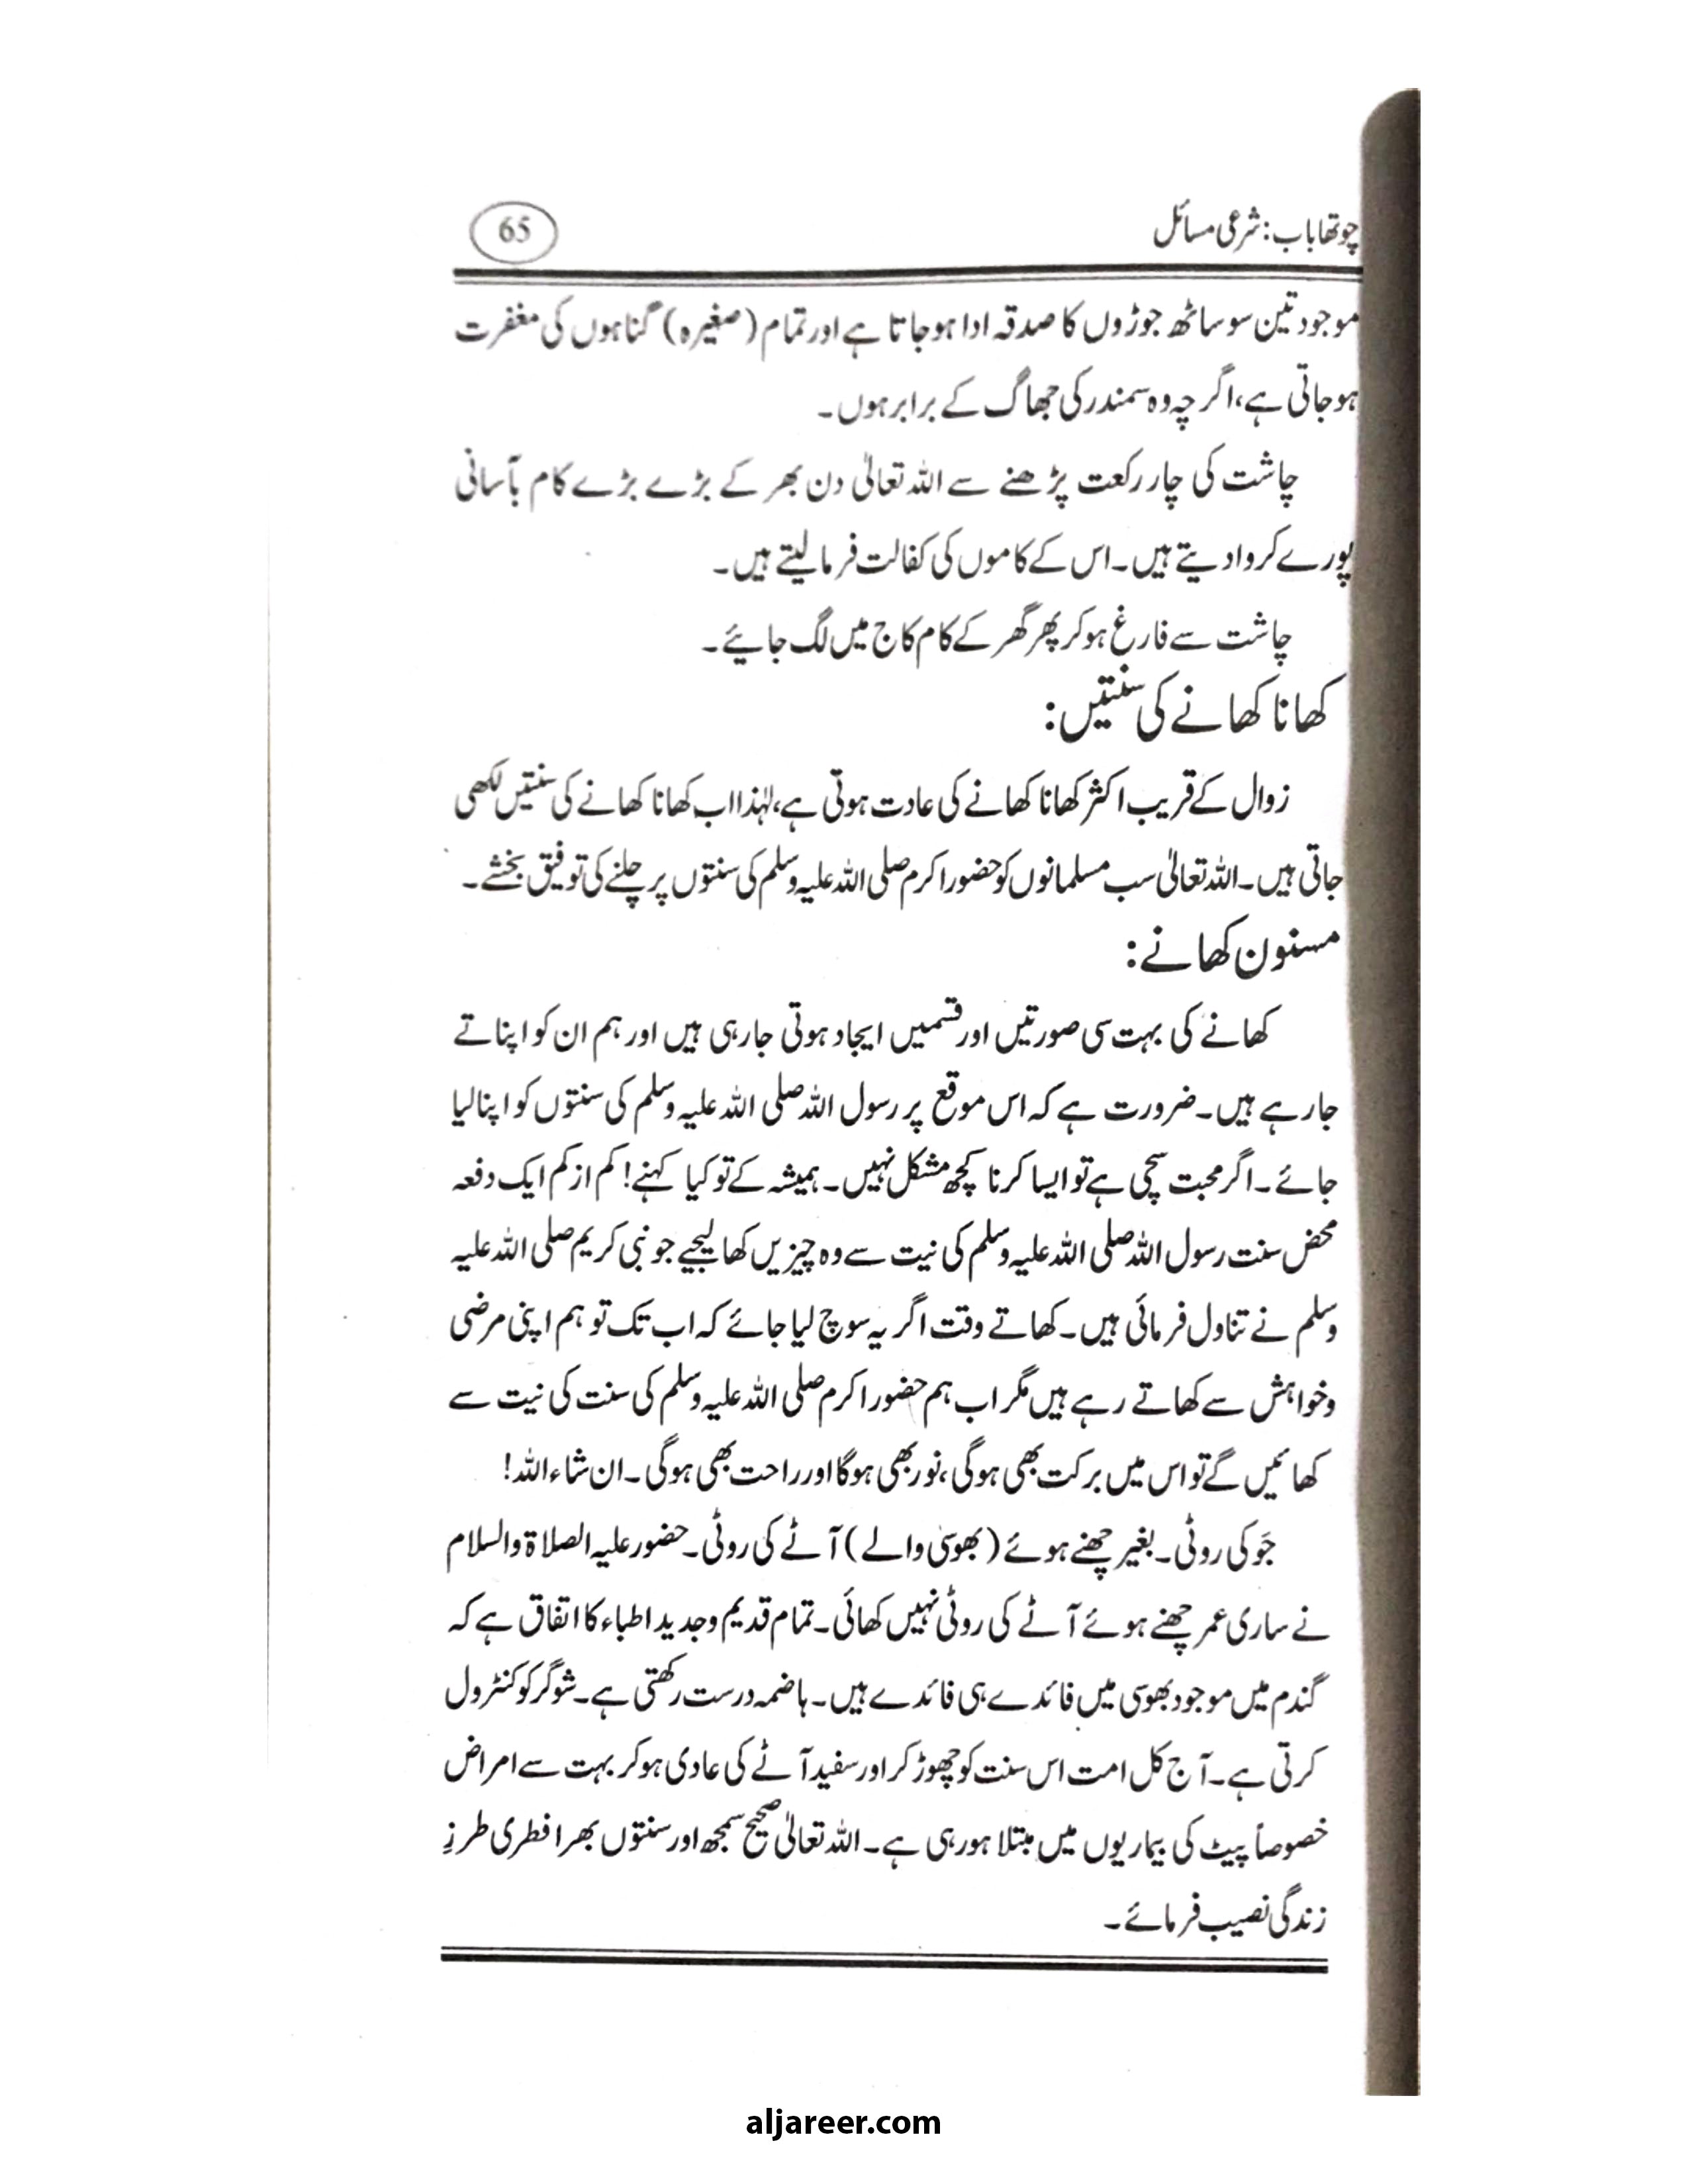 چوتھا باب: شرعی مسائل
65
موجود تین سو ساٹھ جوڑوں کا صدقہ ادا ہو جاتا ہے اور تمام (صغیرہ) گناہوں کی مغفرت
ہو جاتی ہے، اگرچہ وہ سمندر کی جھاگ کے برابر ہوں۔
چاشت کی چار رکعت پڑھنے سے اللہ تعالیٰ دن بھر کے بڑے بڑے کام بآسانی
پورے کروا دیتے ہیں۔ اس کے کاموں کی کفالت فرما لیتے ہیں۔
چاشت سے فارغ ہو کر پھر گھر کے کام کاج میں لگ جائیے۔
کھانا کھانے کی سنتیں:
زوال کے قریب اکثر کھانا کھانے کی عادت ہوتی ہے، لہٰذا اب کھانا کھانے کی سنتیں لکھی
جاتی ہیں۔ اللہ تعالیٰ سب مسلمانوں کو حضور اکرم صلی اللہ علیہ وسلم کی سنتوں پر چلنے کی توفیق بخشے۔
مسنون کھانے:
کھانے کی بہت سی صورتیں اور قسمیں ایجاد ہوتی جا رہی ہیں اور ہم ان کو اپناتے
جا رہے ہیں۔ ضرورت ہے کہ اس موقع پر رسول اللہ صلی اللہ علیہ وسلم کی سنتوں کو اپنا لیا
جائے۔ اگر محبت سچی ہے تو ایسا کرنا کچھ مشکل نہیں۔ ہمیشہ کے تو کیا کہنے! کم از کم ایک دفعہ
محض سنت رسول اللہ صلی اللہ علیہ وسلم کی نیت سے وہ چیزیں کھا لیجیے جو نبی کریم صلی اللہ علیہ
وسلم نے تناول فرمائی ہیں۔ کھاتے وقت اگر یہ سوچ لیا جائے کہ اب تک تو ہم اپنی مرضی
و خواہش سے کھاتے رہے ہیں مگر اب ہم حضور اکرم صلی اللہ علیہ وسلم کی سنت کی نیت سے
کھائیں گے تو اس میں برکت بھی ہوگی، نور بھی ہوگا اور راحت بھی ہوگی۔ ان شاء اللہ!
جَو کی روٹی۔ بغیر چھنے ہوئے (بھوسی والے) آٹے کی روٹی۔ حضور علیہ الصلاۃ والسلام
نے ساری عمر چھنے ہوئے آٹے کی روٹی نہیں کھائی۔ تمام قدیم و جدید اطباء کا اتفاق ہے کہ
گندم میں موجود بھوسی میں فائدے ہی فائدے ہیں۔ ہاضمہ درست رکھتی ہے۔ شوگر کو کنٹرول
کرتی ہے۔ آج کل امت اس سنت کو چھوڑ کر اور سفید آٹے کی عادی ہو کر بہت سے امراض
خصوصاً پیٹ کی بیماریوں میں مبتلا ہو رہی ہے۔ اللہ تعالیٰ صحیح سمجھ اور سنتوں بھرا فطری طرزِ
زندگی نصیب فرمائے۔
aljareer.com